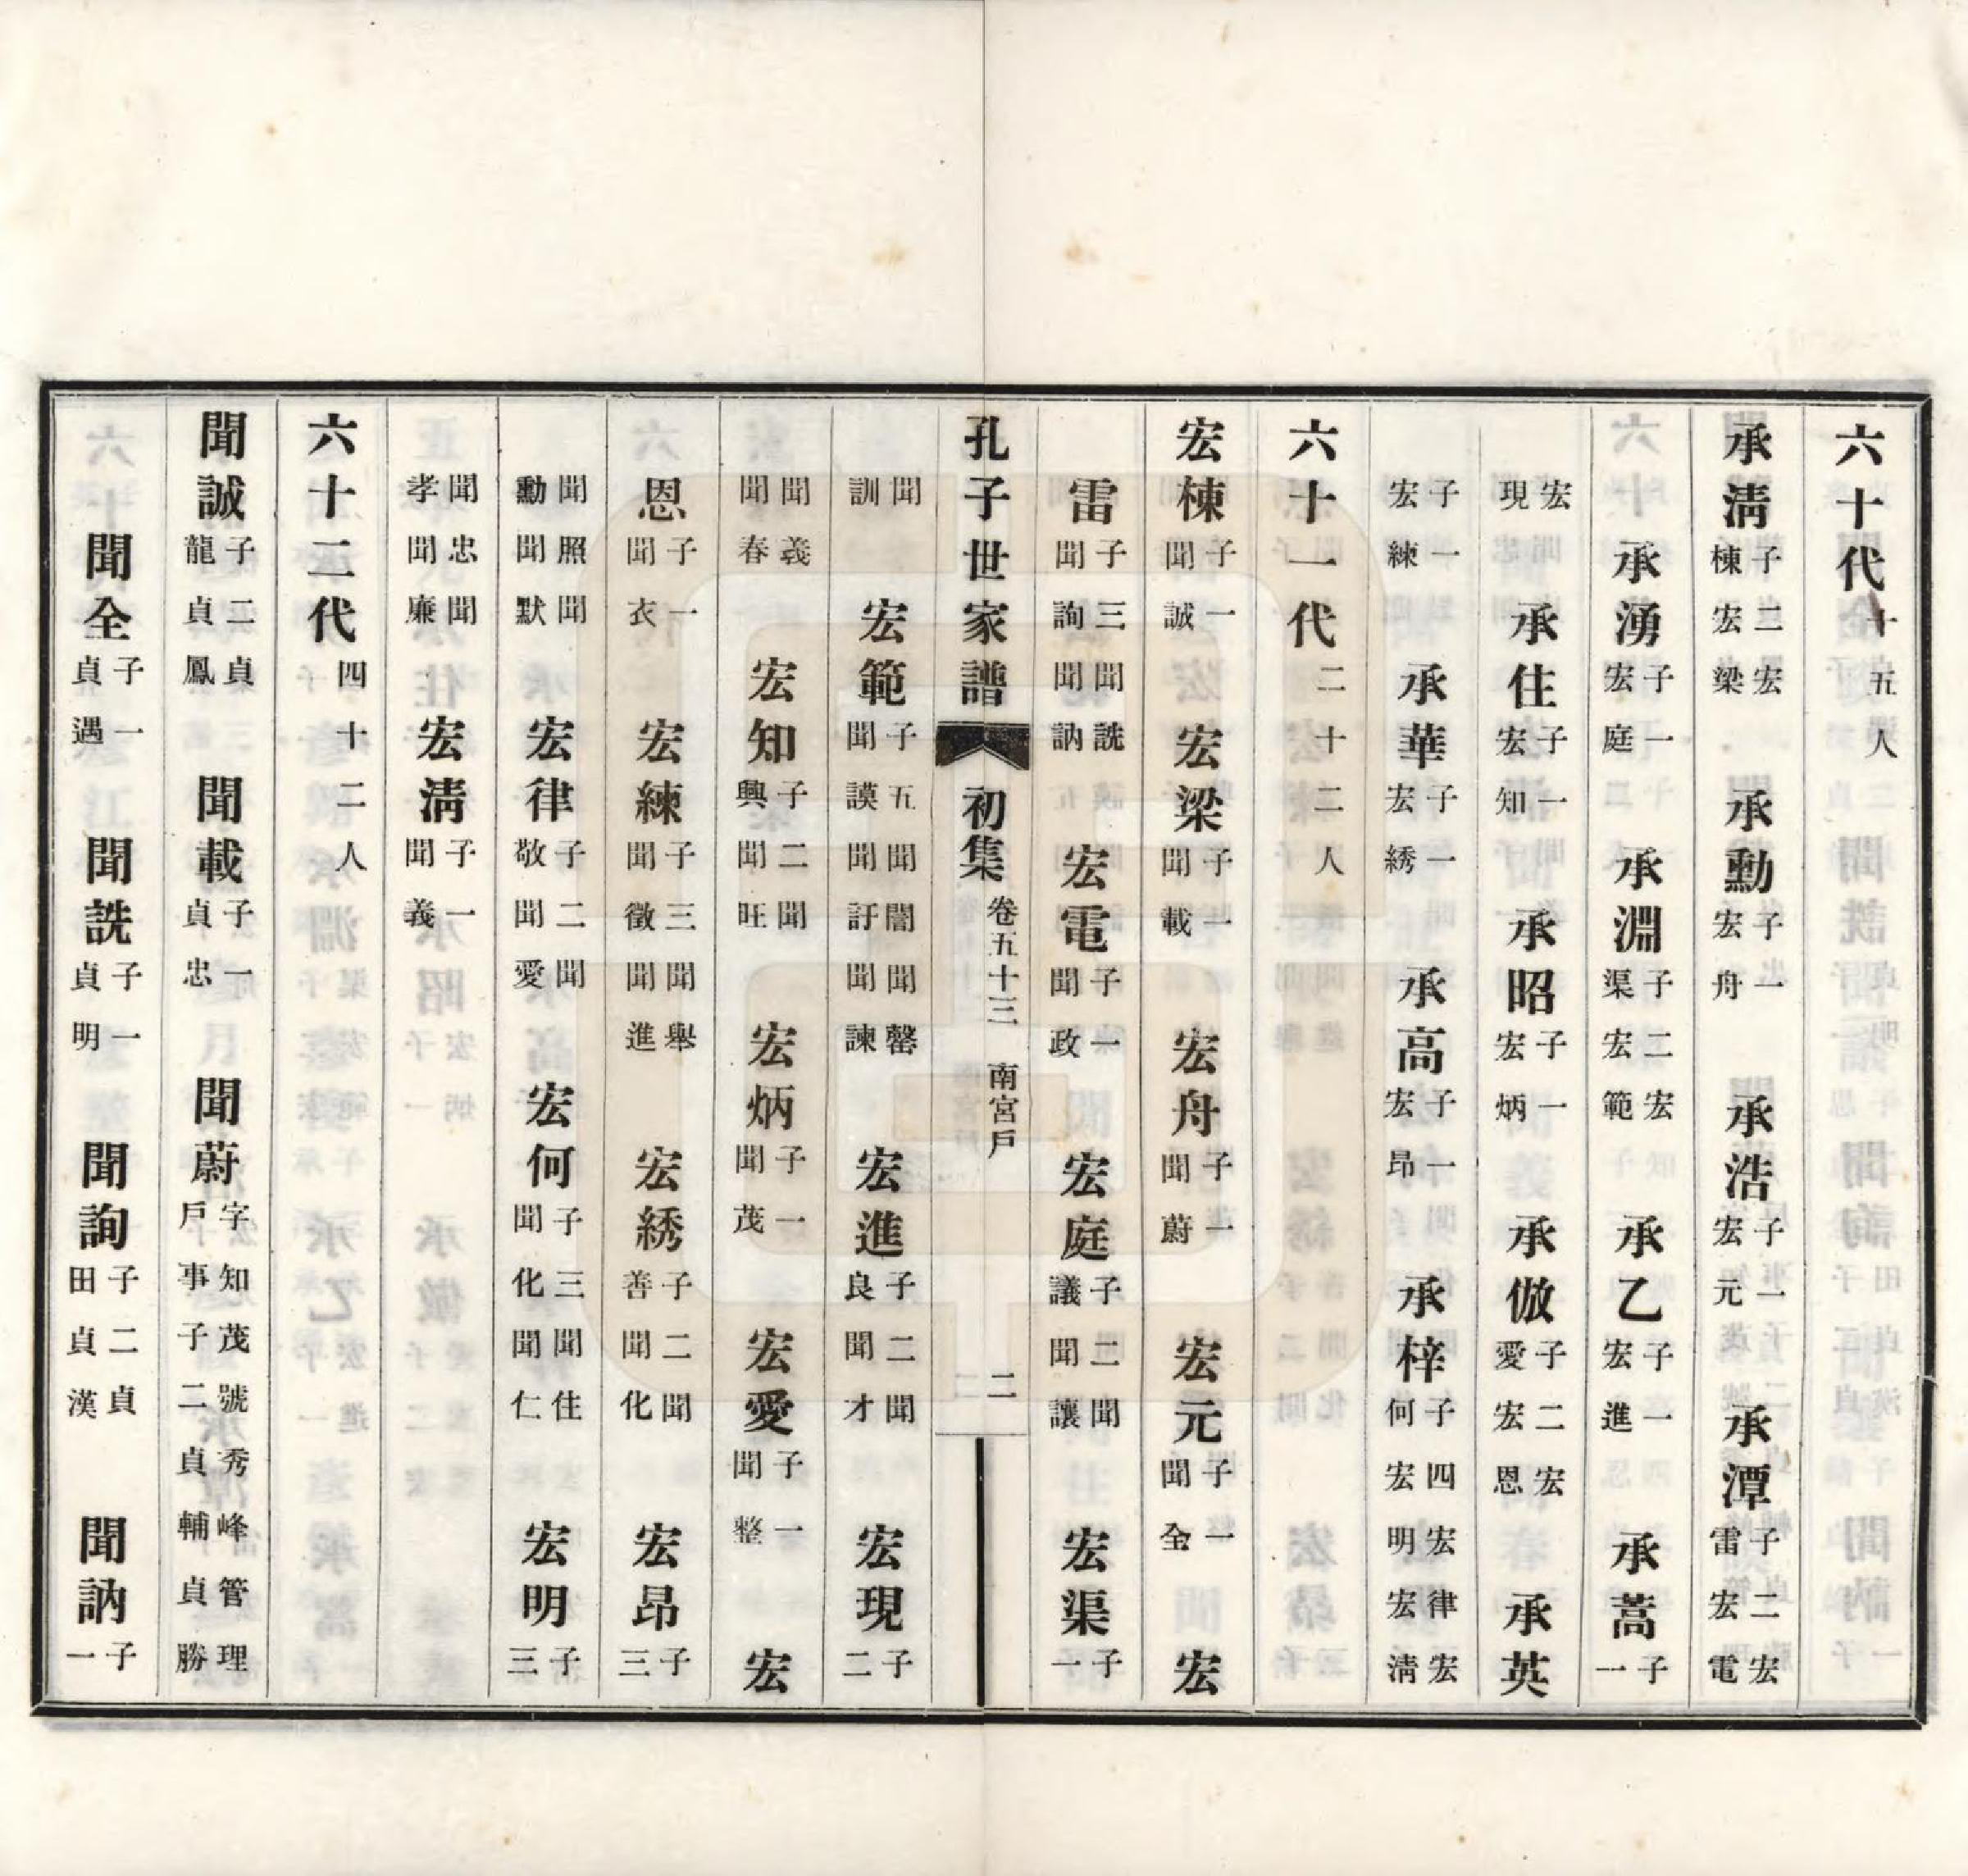 六十代十五人
承淸子二宏棟宏梁　承勳子一宏舟　承浩子一宏元　承潭子二宏雷宏電
承湧子一宏庭　承淵子二宏渠宏範　承乙子一宏進　承蒿子一
宏現　承住子一宏知　承昭子一宏炳　承倣子二宏愛宏恩　承英
子一宏練　承華子一宏綉　承高子一宏昂　承梓子四宏何宏律宏明宏淸
六十一代二十二人
宏棟子一聞誠　宏梁子一聞載　宏舟子一聞蔚　宏元子一聞全　宏
雷子三聞詵聞詢聞訥　宏電子一聞政　宏庭子二聞議聞讓　宏渠子一
孔子世家譜　初集　卷五十三　南宮戶　二
聞訓　宏範子五聞謨聞誾聞訏聞罄聞諫　宏進子二聞良聞才　宏現子二
聞義聞春　宏知子二聞興聞旺　宏炳子一聞茂　宏愛子一聞整　宏
恩子一聞衣　宏練子三聞徵聞舉聞進　宏綉子二聞善聞化　宏昂子三
聞照聞勳聞默　宏律子二聞敬聞愛　宏何子三聞化聞住聞仁　宏明子三
聞忠聞孝聞廉　宏淸子一聞義
六十二代四十二人
聞誠子二貞龍貞鳳　聞載子一貞忠　聞蔚字知茂號秀峰管理戶事子二貞輔貞勝
聞全子一貞遇　聞詵子一貞明　聞詢子二貞田貞漢　聞訥子一